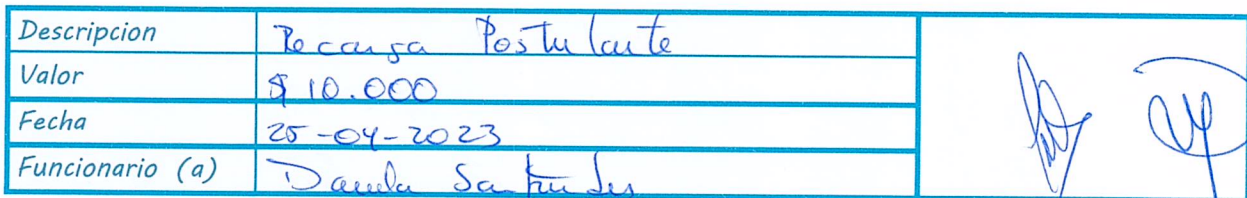 Descripcion Recarga Postulante
Valor $ 10.000
Fecha 25-04-2023
Funcionario (a) Daniela